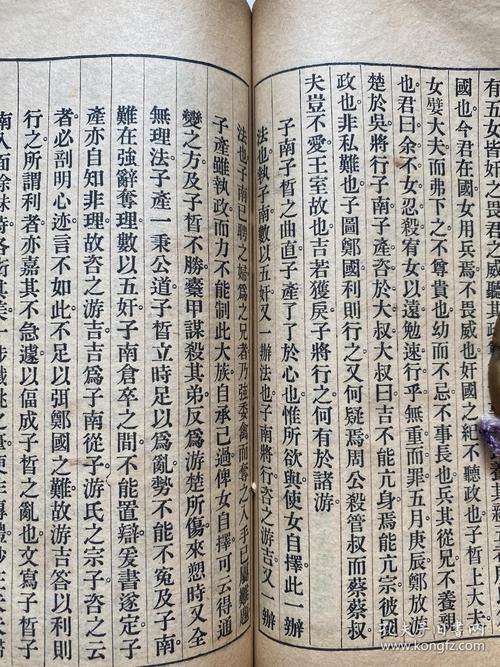 有五女皆奸之畏君之威聽其政
國也今君在國女用兵焉不畏威也奸國之紀不聽政也子晳上大夫
女嬖大夫而弗下之不尊貴也幼而不忌不事長也兵其從兄不養親
也君曰余不女忍殺宥女以遠勉速行乎無重而罪五月庚辰鄭放游
楚於吳將行子南子產咨於大叔大叔曰吉不能亢身焉能亢宗彼國
政也非私難也子圖鄭國利則行之又何疑焉周公殺管叔而蔡蔡叔
夫豈不愛王室故也吉若獲戾子將行之何有於諸游
子南子晳之曲直子產了了於心也惟所欲與使女自擇此一辦
法也執子南數以五奸又一辦法也子南將行咨之游吉又一辦
法也子南已聘之婦爲之兄者乃強委禽而奪之入手已屬難題
子產雖執政而力不能制此大族自承已過俾女自擇可云得通
變之方及子晳不勝櫜甲謀殺其弟反爲游楚所傷來愬時又全
無理法子產一秉公道子晳立時足以爲亂勢不能不寃及子南
難在強辭奪理數以五奸子南倉卒之間不能置辯爰書遂定子
產亦自知非理故咨之游吉吉爲子南從子游氏之宗子咨之云
者必剖明心迹言不如此不足以弭鄭國之難故游吉答以利則
行之所謂利者亦嘉其不急遽以偪成子晳之亂也文寫子晳